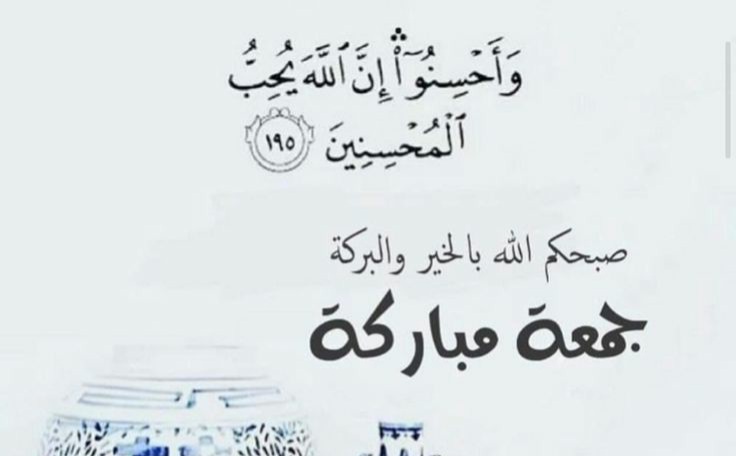 وَأَحْسِنُوٓا۟ ۛ إِنَّ ٱللَّهَ يُحِبُّ
ٱلْمُحْسِنِينَ ١٩٥
صبحكم الله بالخير والبركة
جمعة مباركة